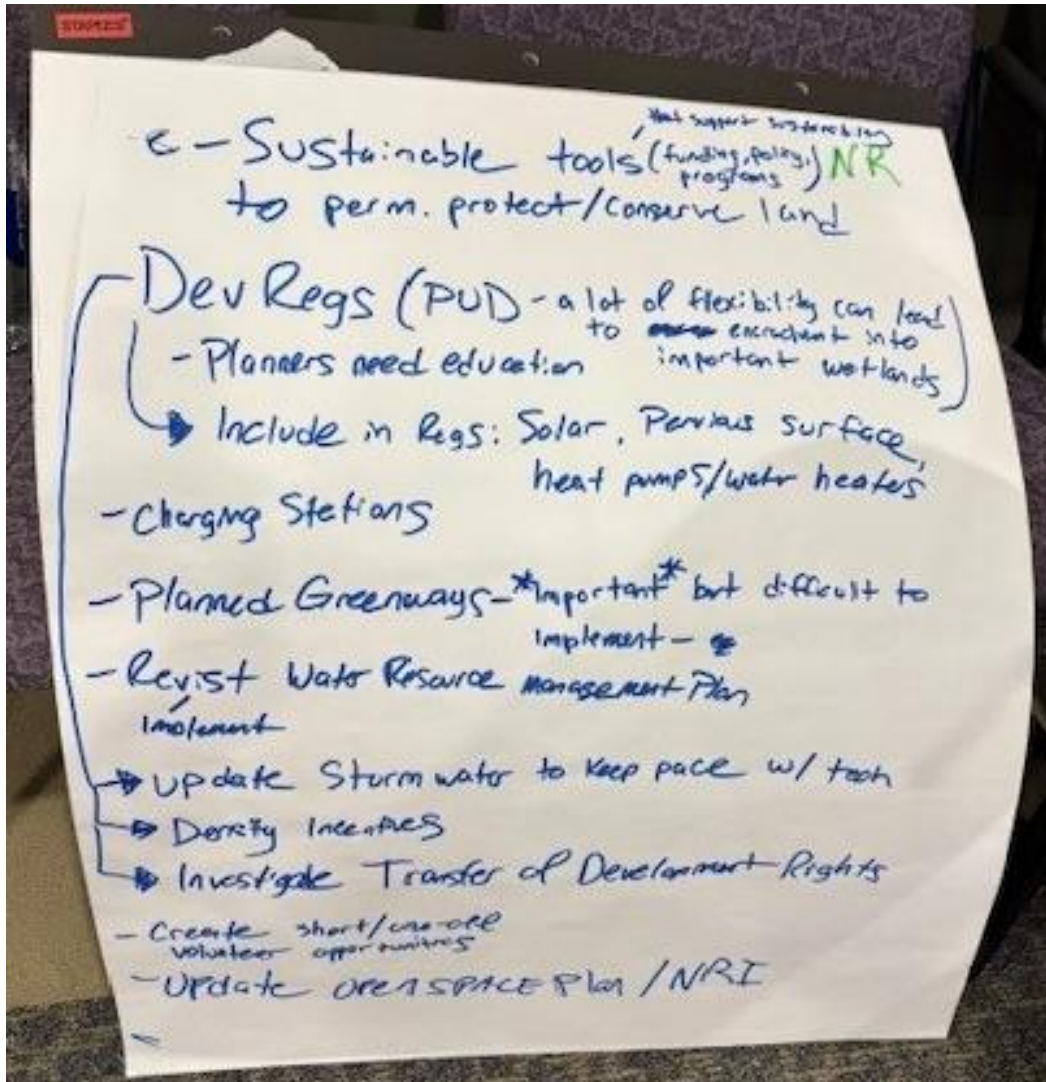 STAPLES
that support sustainability
c - Sustainable tools (funding, policy, programs) NR
to perm. protect/conserve land
Dev Regs (PUD - a lot of flexibility can lead
to encrachent into
- Planners need education important wetlands)
Include in Regs: Solar, Pervious surface,
heat pumps/water heaters
- Charging Stations
- Planned Greenways - *Important* but difficult to
implement -
- Revist Water Resource management Plan
Implement
Update Stormwater to keep pace w/ tech
Density Incentives
Investigate Transfer of Development Rights
- Create short/one-off
volunteer opportunities
- Update open SPACE Plan / NRI